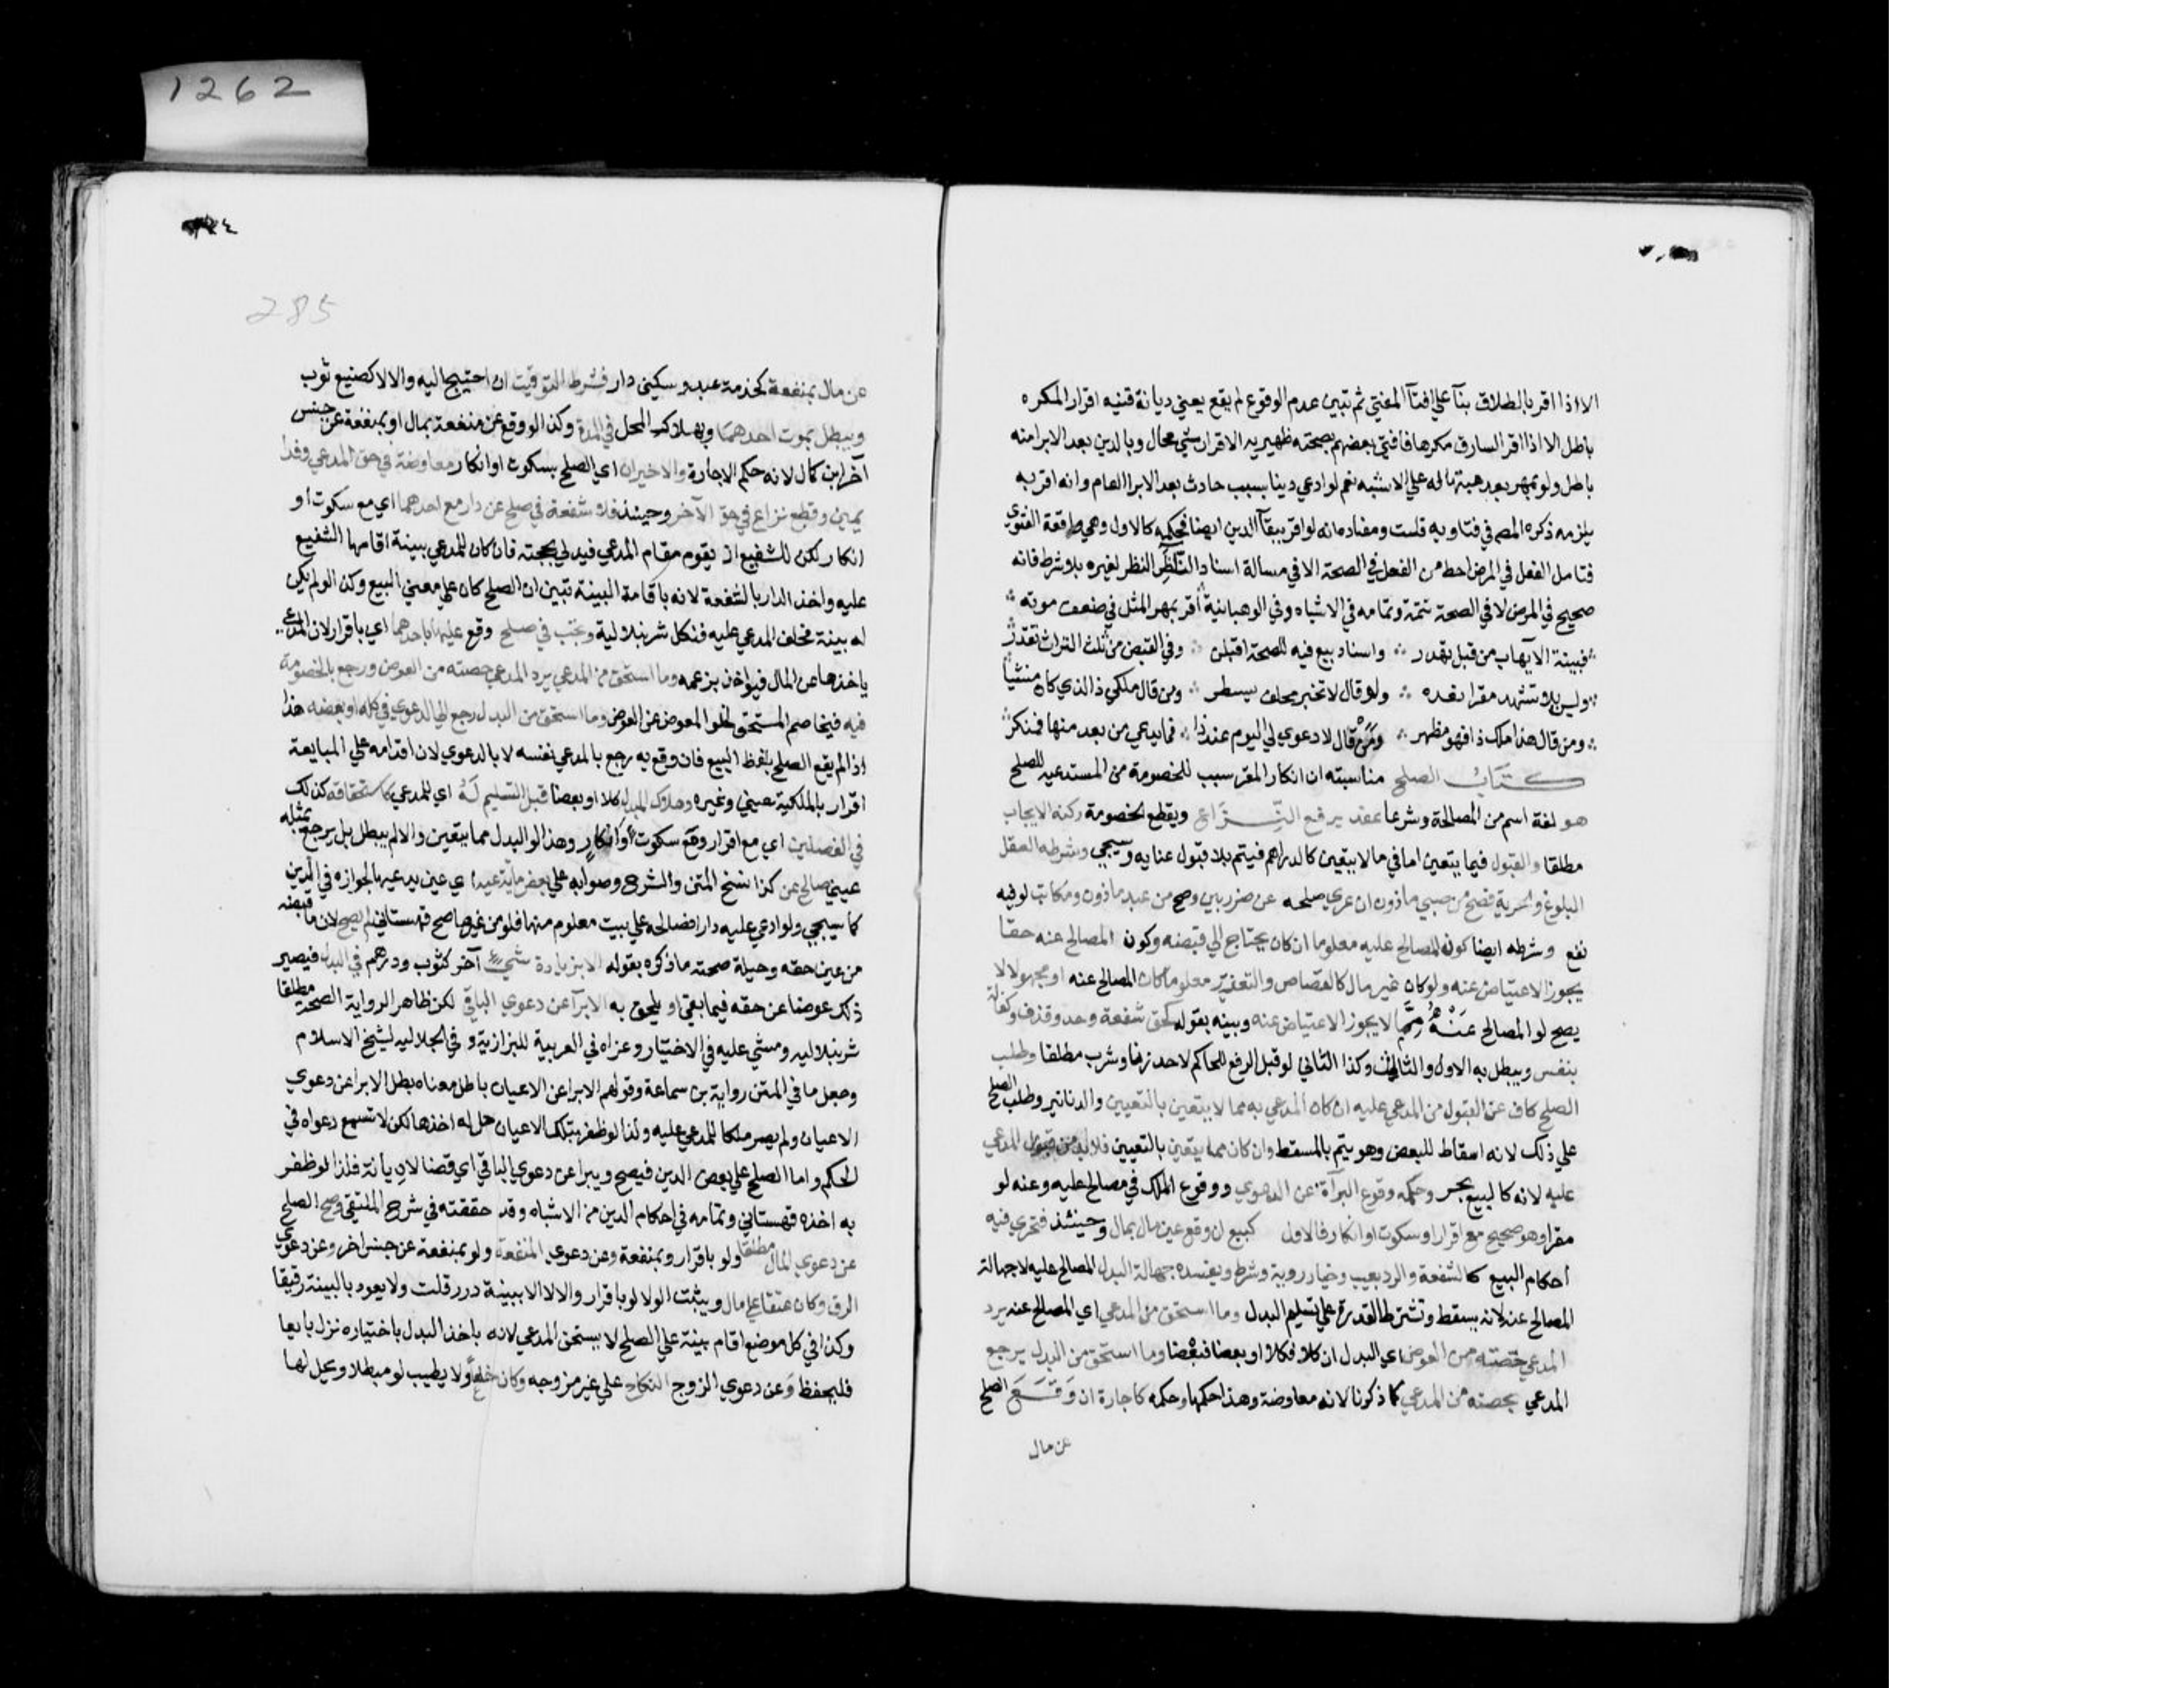 1262
285
الا اذا اقر بالطلاق بنآ علي افتآ المفتي ثم تبين عدم الوقوع لم يقع يعني ديانة قنيه اقرار المكره
باطل الا اذا اقر السارق مكرها فافتي بعضهم بصحته ظهيريه الاقرار بشي محال وبالدين بعد الابرا منه
باطل ولو بمهر بعد هبتها له علي الاشبه نعم لو ادعي دينا بسبب حادث بعد الابرا العام وانه اقر به
يلزمه ذكره المصـ في فتاويه قلت ومفاده انه لو اقر ببقآ الدين ايضا فحكمه كالاول وهي واقعة الفتوي
فتامل الفعل في المرض احط من الفعل في الصحة الا في مسالة اسناد الناظر النظر لغيره بلا شرط فانه
صحيح في المرض لا في الصحة تتمة وتمامه في الاشباه وفي الوهبانية اقر بمهر المثل في ضعف موته
فبينة الايهاب من قبل تهدر واسناد بيع فيه للصحة اقبلن وفي القبض من ثلث التراث تقدر
وليس بلا تشهد مقرا نعده ولو قال لا تخبر فخلف يسطر ومن قال ملكي ذا الذي كان منشيا
ومن قال هذا ملك ذا فهو مظهر ومن قال لا دعوي لي اليوم عند ذا فما يدعي من بعد منها فمنكر
كتاب الصلح مناسبته ان انكار المقر سبب للخصومة من المستدعيه للصلح
هو لغة اسم من المصالحة وشرعا عقد يرفع النزاع ويقطع الخصومة ركنه الايجاب
مطلقا والقبول فيما يتعين اما في ما لا يتعين كالدراهم فيتم بلا قبول عنايه وسيجي وشرطه العقل
البلوغ والحرية فصح من صبي ماذون ان عري صلحه عن ضرر بين وصح من عبد ماذون ومكاتب لو فيه
نفع وشرطه ايضا كون المصالح عليه معلوما ان كان يحتاج الي قبضه وكون المصالح عنه حقا
يجوز الاعتياض عنه ولو كان غير مال كالقصاص والتعذير معلوما كان المصالح عنه او مجهولا لا
يصح لو المصالح عنه مما لا يجوز الاعتياض عنه وبينه بقوله كحق شفعة وحد وقذف وكفالة
بنفس ويبطل به الاول والثالث وكذا الثاني لو قبل الرفع للحاكم لا حد زنا وشرب مطلقا وطلب
الصلح كاف عن القبول من المدعي عليه ان كان المدعي به مما لا يتعين بالتعيين والدنانير وطلب الصلح
علي ذلك لانه اسقاط للبعض وهو يتم بالمسقط وان كان مما يتعين بالتعيين فلا بد من قبول المدعي
عليه لانه كالبيع بحر وحكمه وقوع البرآة عن الدعوي ووقوع الملك في مصالح عليه وعنه لو
مقرا وهو صحيح مع اقرار او سكوت او انكار فالاول كبيع ان وقع عن مال بمال وحينئذ فتجري فيه
احكام البيع كالشفعة والرد بعيب وخيار روية وشرط ويفسده جهالة البدل المصالح عليه لا جهالة
المصالح عنه لانه يسقط وتشترط القدرة علي تسليم البدل وما استحق من المدعي اي المصالح عنه يرد
المدعي حصته من العوض اي البدل ان كلا فكلا او بعضا فبعضا وما استحق من البدل يرجع
المدعي بحصته من المدعي كما ذكرنا لانه معاوضة وهذا حكمها وحكمه كاجارة ان وقع الصلح
عن مال
عن مال بمنفعة كخدمة عبد وسكني دار فشرط التوقيت ان احتيج اليه والا لا كصبغ ثوب
ويبطل بموت احدهما وبهلاك المحل في المدة وكذا لو وقع عن منفعة بمال او بمنفعة عن جنس
آخر ابن كمال لانه حكم الاجارة والاخيران اي الصلح بسكوت او انكار معاوضة في حق المدعي وفدا
يمين وقطع نزاع في حق الآخر وحينئذ فلا شفعة في صلح عن دار مع احدهما اي مع سكوت او
انكار لكن للشفيع ان يقوم مقام المدعي فيدلي بحجته فان كان للمدعي بينة اقامها الشفيع
عليه واخذ الدار بالشفعة لانه باقامة البينة تبين ان الصلح كان علي معني البيع وكذا لو لم يكن
له بينة فحلف المدعي عليه فنكل شرنبلالية وتجب في صلح وقع عليها باحدهما اي باقرار لان المدعي
ياخذها عن المال فيواخذ بزعمه وما استحق من المدعي يرد المدعي حصته من العوض ورجع بالخصومة
فيه فيخاصم المستحق لخلو المعوض عن العوض وما استحق من البدل رجع الي الدعوي في كله او بعضه هذا
اذا لم يقع الصلح بلفظ البيع فان وقع به رجع بالمدعي نفسه لا بالدعوي لان اقدامه علي المبايعة
اقرار بالملكية عيني وغيره وهلاك البدل كلا او بعضا قبل التسليم له اي للمدعي كاستحقاقه كذلك
في الفصلين اي مع اقرار ومع سكوت او انكار وهذا لو البدل مما يتعين والا لم يبطل بل يرجع بمثله
عيني صالح عن كذا نسخ المتن والشرح وصوابه علي بعض ما يدعيه اي عين يدعيها لجوازه في الدين
كما سيجي ولو ادعي عليه دارا فصالحه علي بيت معلوم منها فلو من غيرها صح قهستاني لم يصح لان ما قبضه
من عين حقه وحيلة صحته ما ذكره بقوله الا بزيادة شيء آخر كثوب ودرهم في البدل فيصير
ذلك عوضا عن حقه فيما بقي او يلحق به الابرآ عن دعوي الباقي لكن ظاهر الرواية الصحة مطلقا
شرنبلاليه ومشي عليه في الاختيار وعزاه في العزمية للبزازية وفي الجلاليه لشيخ الاسلام
وجعل ما في المتن رواية بن سماعة وقولهم الابرا عن الاعيان باطل معناه بطل الابرا عن دعوي
الاعيان ولم يصر ملكا للمدعي عليه ولذا لو ظفر بتلك الاعيان حل له اخذها لكن لا تسمع دعواه في
الحكم واما الصلح علي بعض الدين فيصح ويبرا عن دعوي الباقي اي قضا لا ديانة فلذا لو ظفر
به اخذه قهستاني وتمامه في احكام الدين من الاشباه وقد حققته في شرح الملتقي وصح الصلح
عن دعوي المال مطلقا ولو باقرار وبمنفعة وعن دعوي المنفعة ولو بمنفعة عن جنس اخر وعن دعوي
الرق وكان عتقا علي مال ويثبت الولا لو باقرار والا لا الا ببينة درر قلت ولا يعود بالبينة رقيقا
وكذا في كل موضع اقام بينة علي الصلح لا يستحق المدعي لانه باخذ البدل باختياره نزل بايعا
فليحفظ وعن دعوي الزوج النكاح علي غير مزوجه وكان خلعا ولا يطيب لو مبطلا ويحل لها